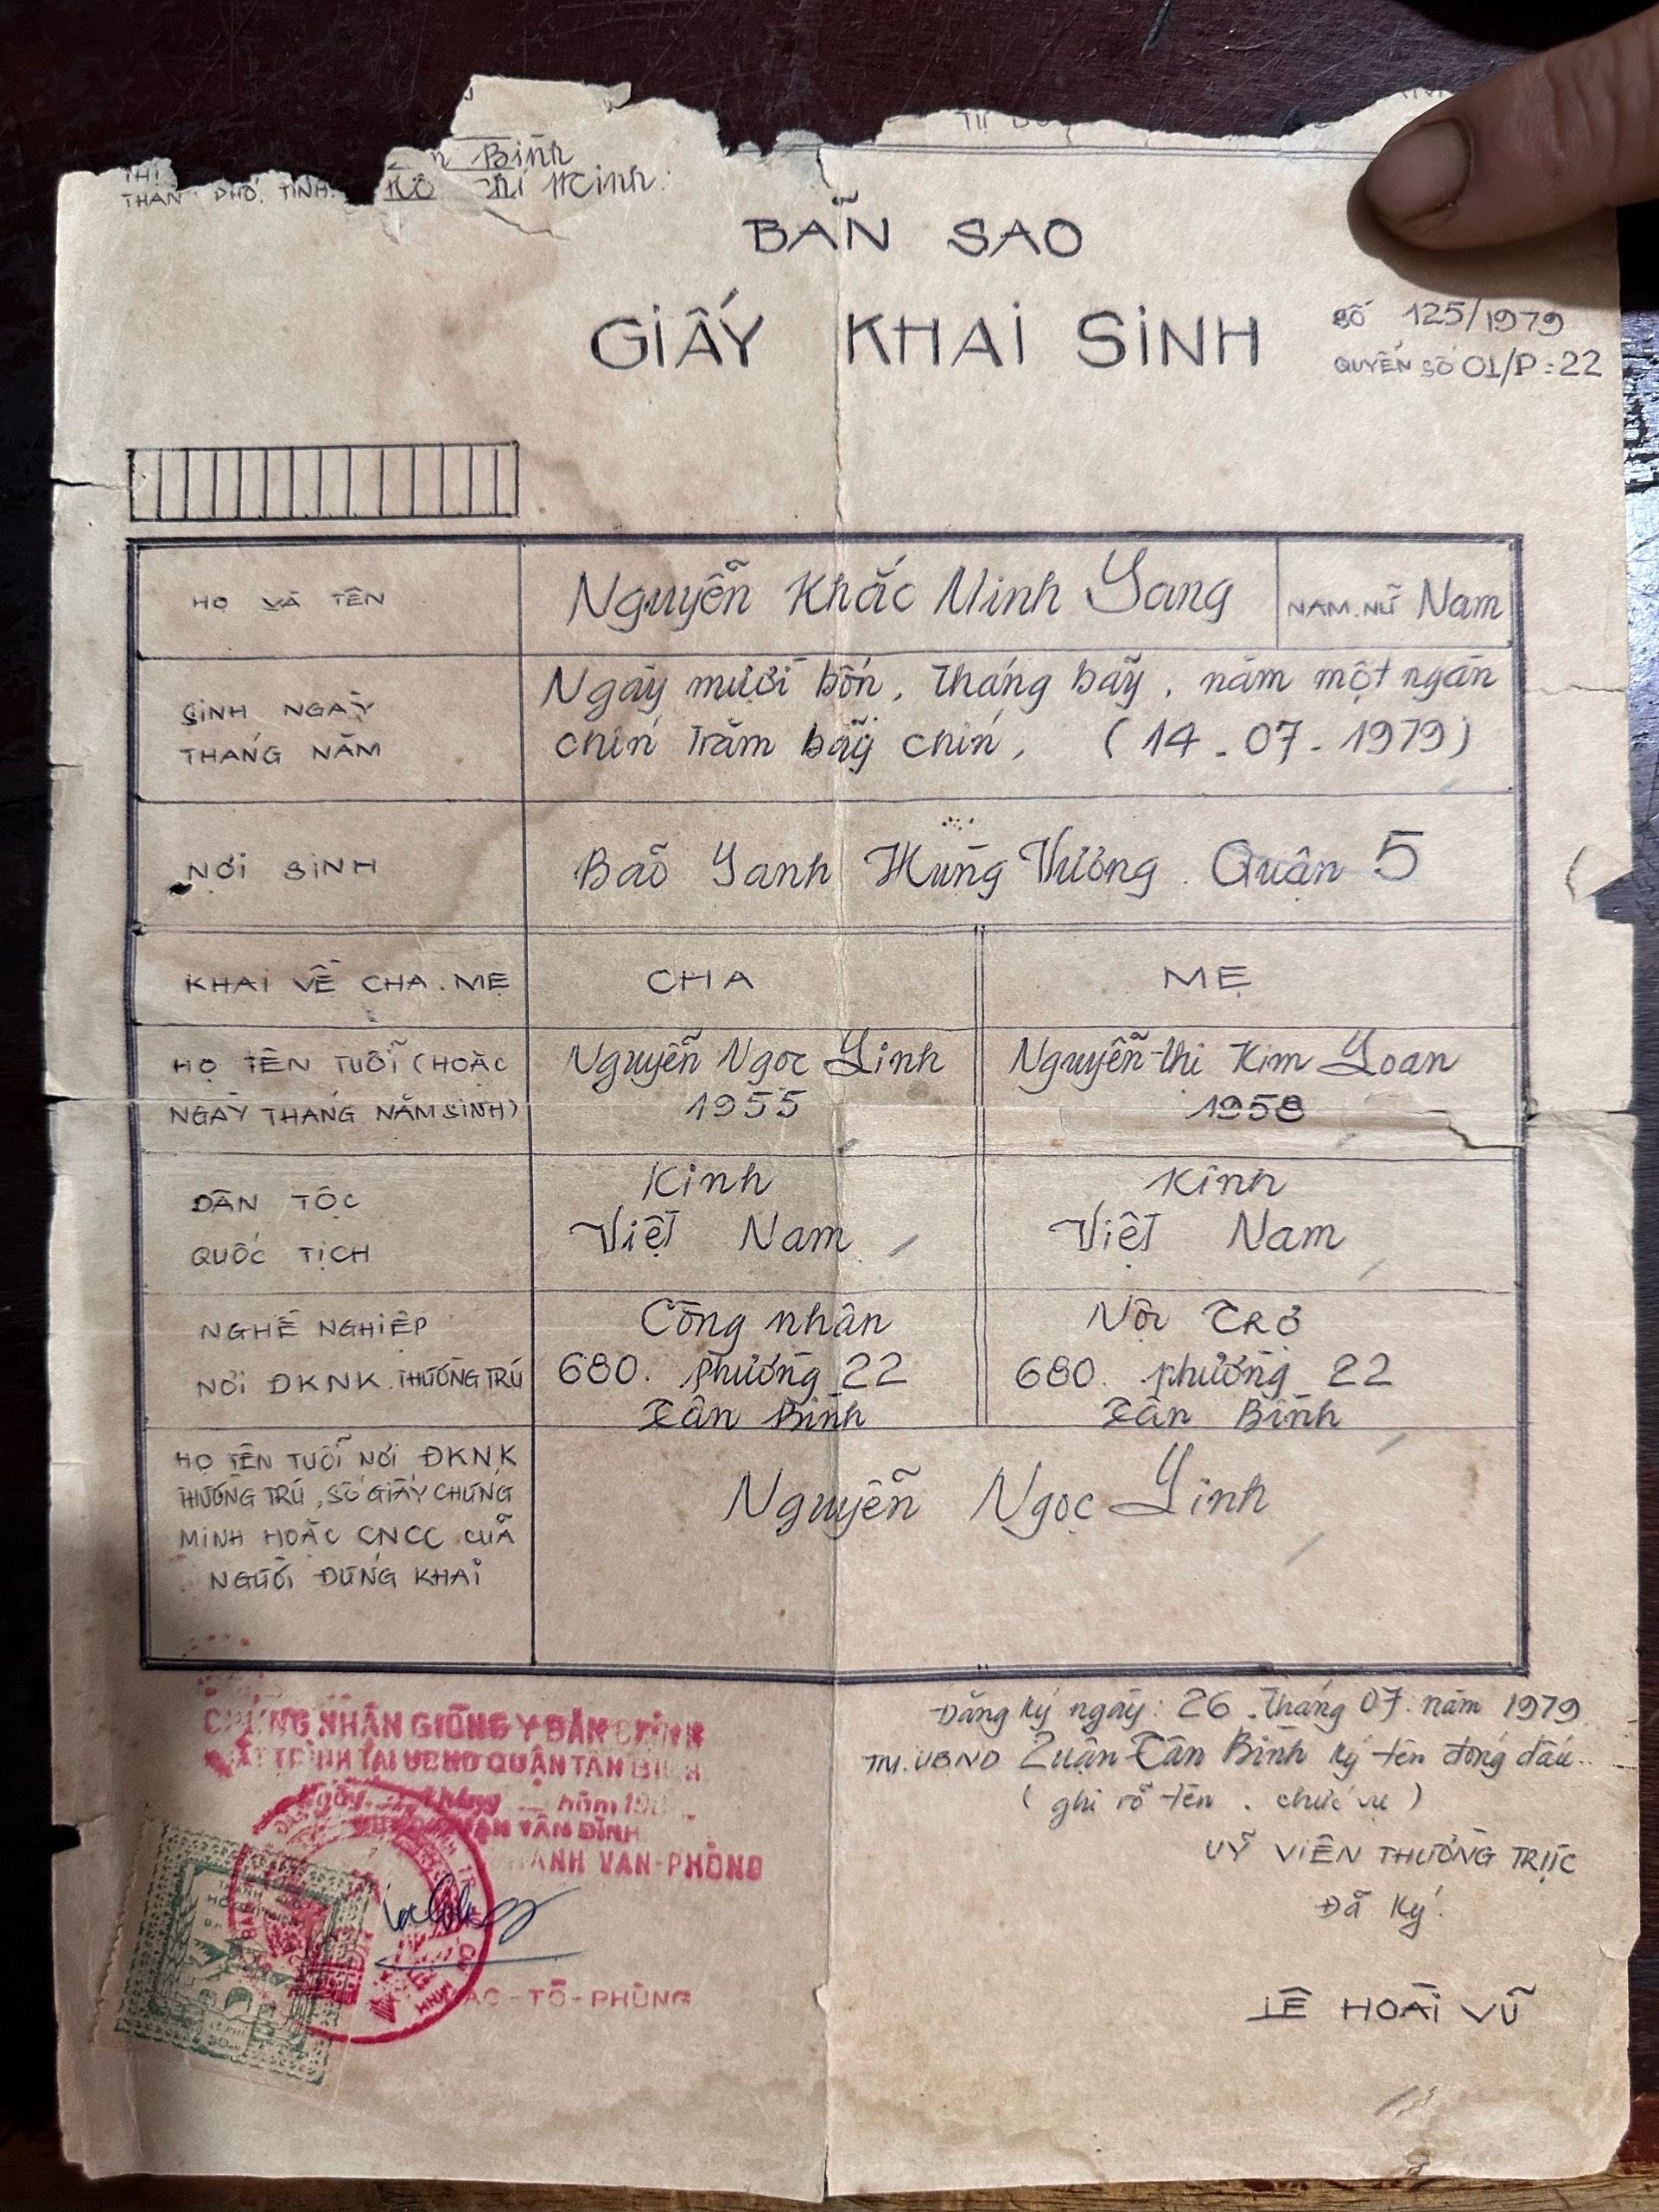 n Bình
THÀN PHỐ, TỈNH: Hồ Chí Minh.
BẢN SAO
GIẤY KHAI SINH
SỐ 125/1979
QUYỂN SỐ 01/P:22
HỌ VÀ TÊN
Nguyễn Khắc Minh Yang
NAM. NỮ Nam
SINH NGÀY
THÁNG NĂM
Ngày mười bốn, tháng bảy, năm một ngàn
chín trăm bảy chín, (14-07-1979)
NƠI SINH
Bảo Sanh Hùng Vương. Quận 5
KHAI VỀ CHA. MẸ
CHA
MẸ
HỌ TÊN TUỔI (HOẶC
NGÀY THÁNG NĂM SINH)
Nguyễn Ngọc Linh
1955
Nguyễn thị Kim Loan
1958
DÂN TỘC
QUỐC TỊCH
Kinh
Việt Nam
Kinh
Việt Nam
NGHỀ NGHIỆP
NƠI ĐKNK. THƯỜNG TRÚ
Công nhân
680. phường 22
Tân Bình
Nội TRỢ
680. phường 22
Tân Bình
HỌ TÊN TUỔI NƠI ĐKNK
THƯỜNG TRÚ, SỐ GIẤY CHỨNG
MINH HOẶC CNCC CỦA
NGƯỜI ĐỨNG KHAI
Nguyễn Ngọc Linh
CHỨNG NHẬN GIỐNG Y BẢN CHÍNH
XUẤT TRÌNH TẠI UBND QUẬN TÂN BÌNH
Ngày tháng năm 19
TÂN BÌNH
VĂN-PHÒNG
THÀNH PHỐ
HỒ CHÍ MINH
LỆ PHÍ
-TÔ-PHÙNG
Đăng ký ngày: 26. tháng 07. năm 1979
TM. UBND Quận Tân Bình ký tên đóng dấu..
(ghi rõ tên. chức vụ)
UỶ VIÊN THƯỜNG TRỰC
Đã ký.
LÊ HOÀI VŨ